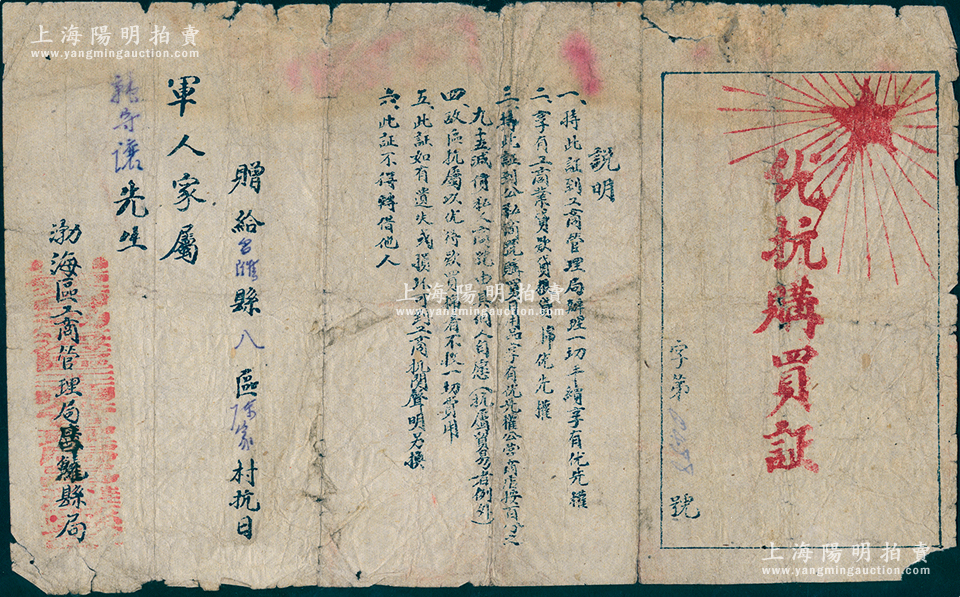 优抗購買証
字第 號
説明
一、持此証到工商管理局辦理一切手續享有优先權
二、享有工商業貸款貸糧買歸优先權
三、持此証到公私商號購買日用品享有优先權公营商店按百分之
九十五減價私人商號由其個人自愿(抗屬貿易者例外)
四、敌區抗屬以优待放買歸者不收一切費用
五、此証如有遺失或損坏可到工商机関聲明另換
六、此証不得轉借他人
贈給昌濰縣八區陳家村抗日
軍人家屬
守讓先生
渤海區工商管理局昌濰縣局
上海陽明拍賣
www.yangmingauction.com
上海陽明拍賣
www.yangmingauction.com
上海陽明拍賣
www.yangmingauction.com